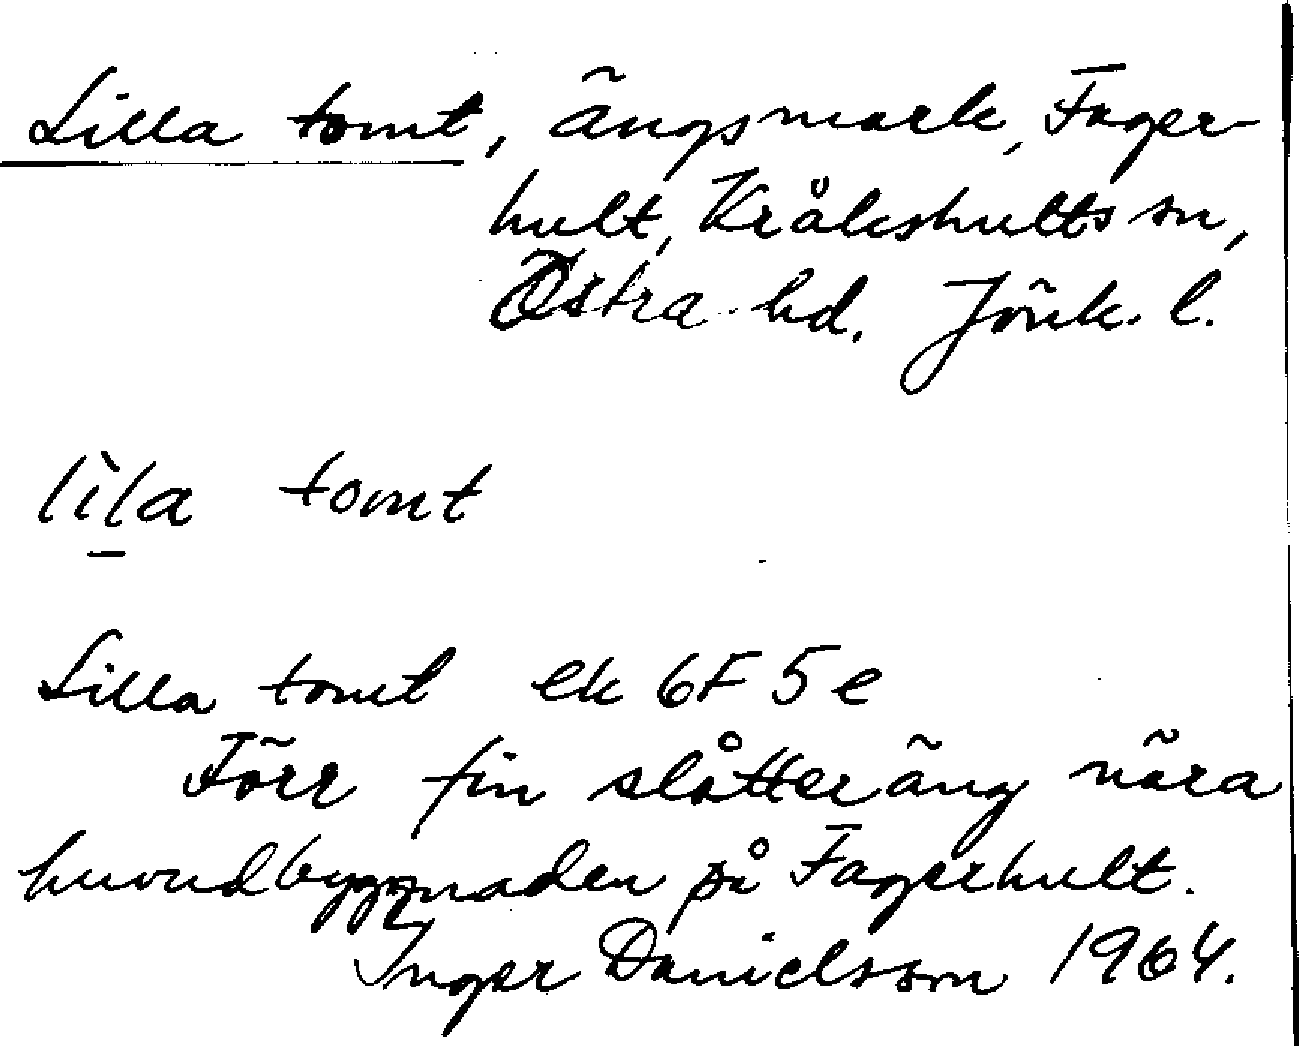 Lilla tomt, ängsmark, Fager-
hult, Kråkshults sn,
Östra hd. Jönk. l.
lìla tomt
Lilla tomt ek 6F 5e
Förr fin slåtteräng nära
huvudbyggnaden på Fagerhult.
Inger Danielsson 1964.